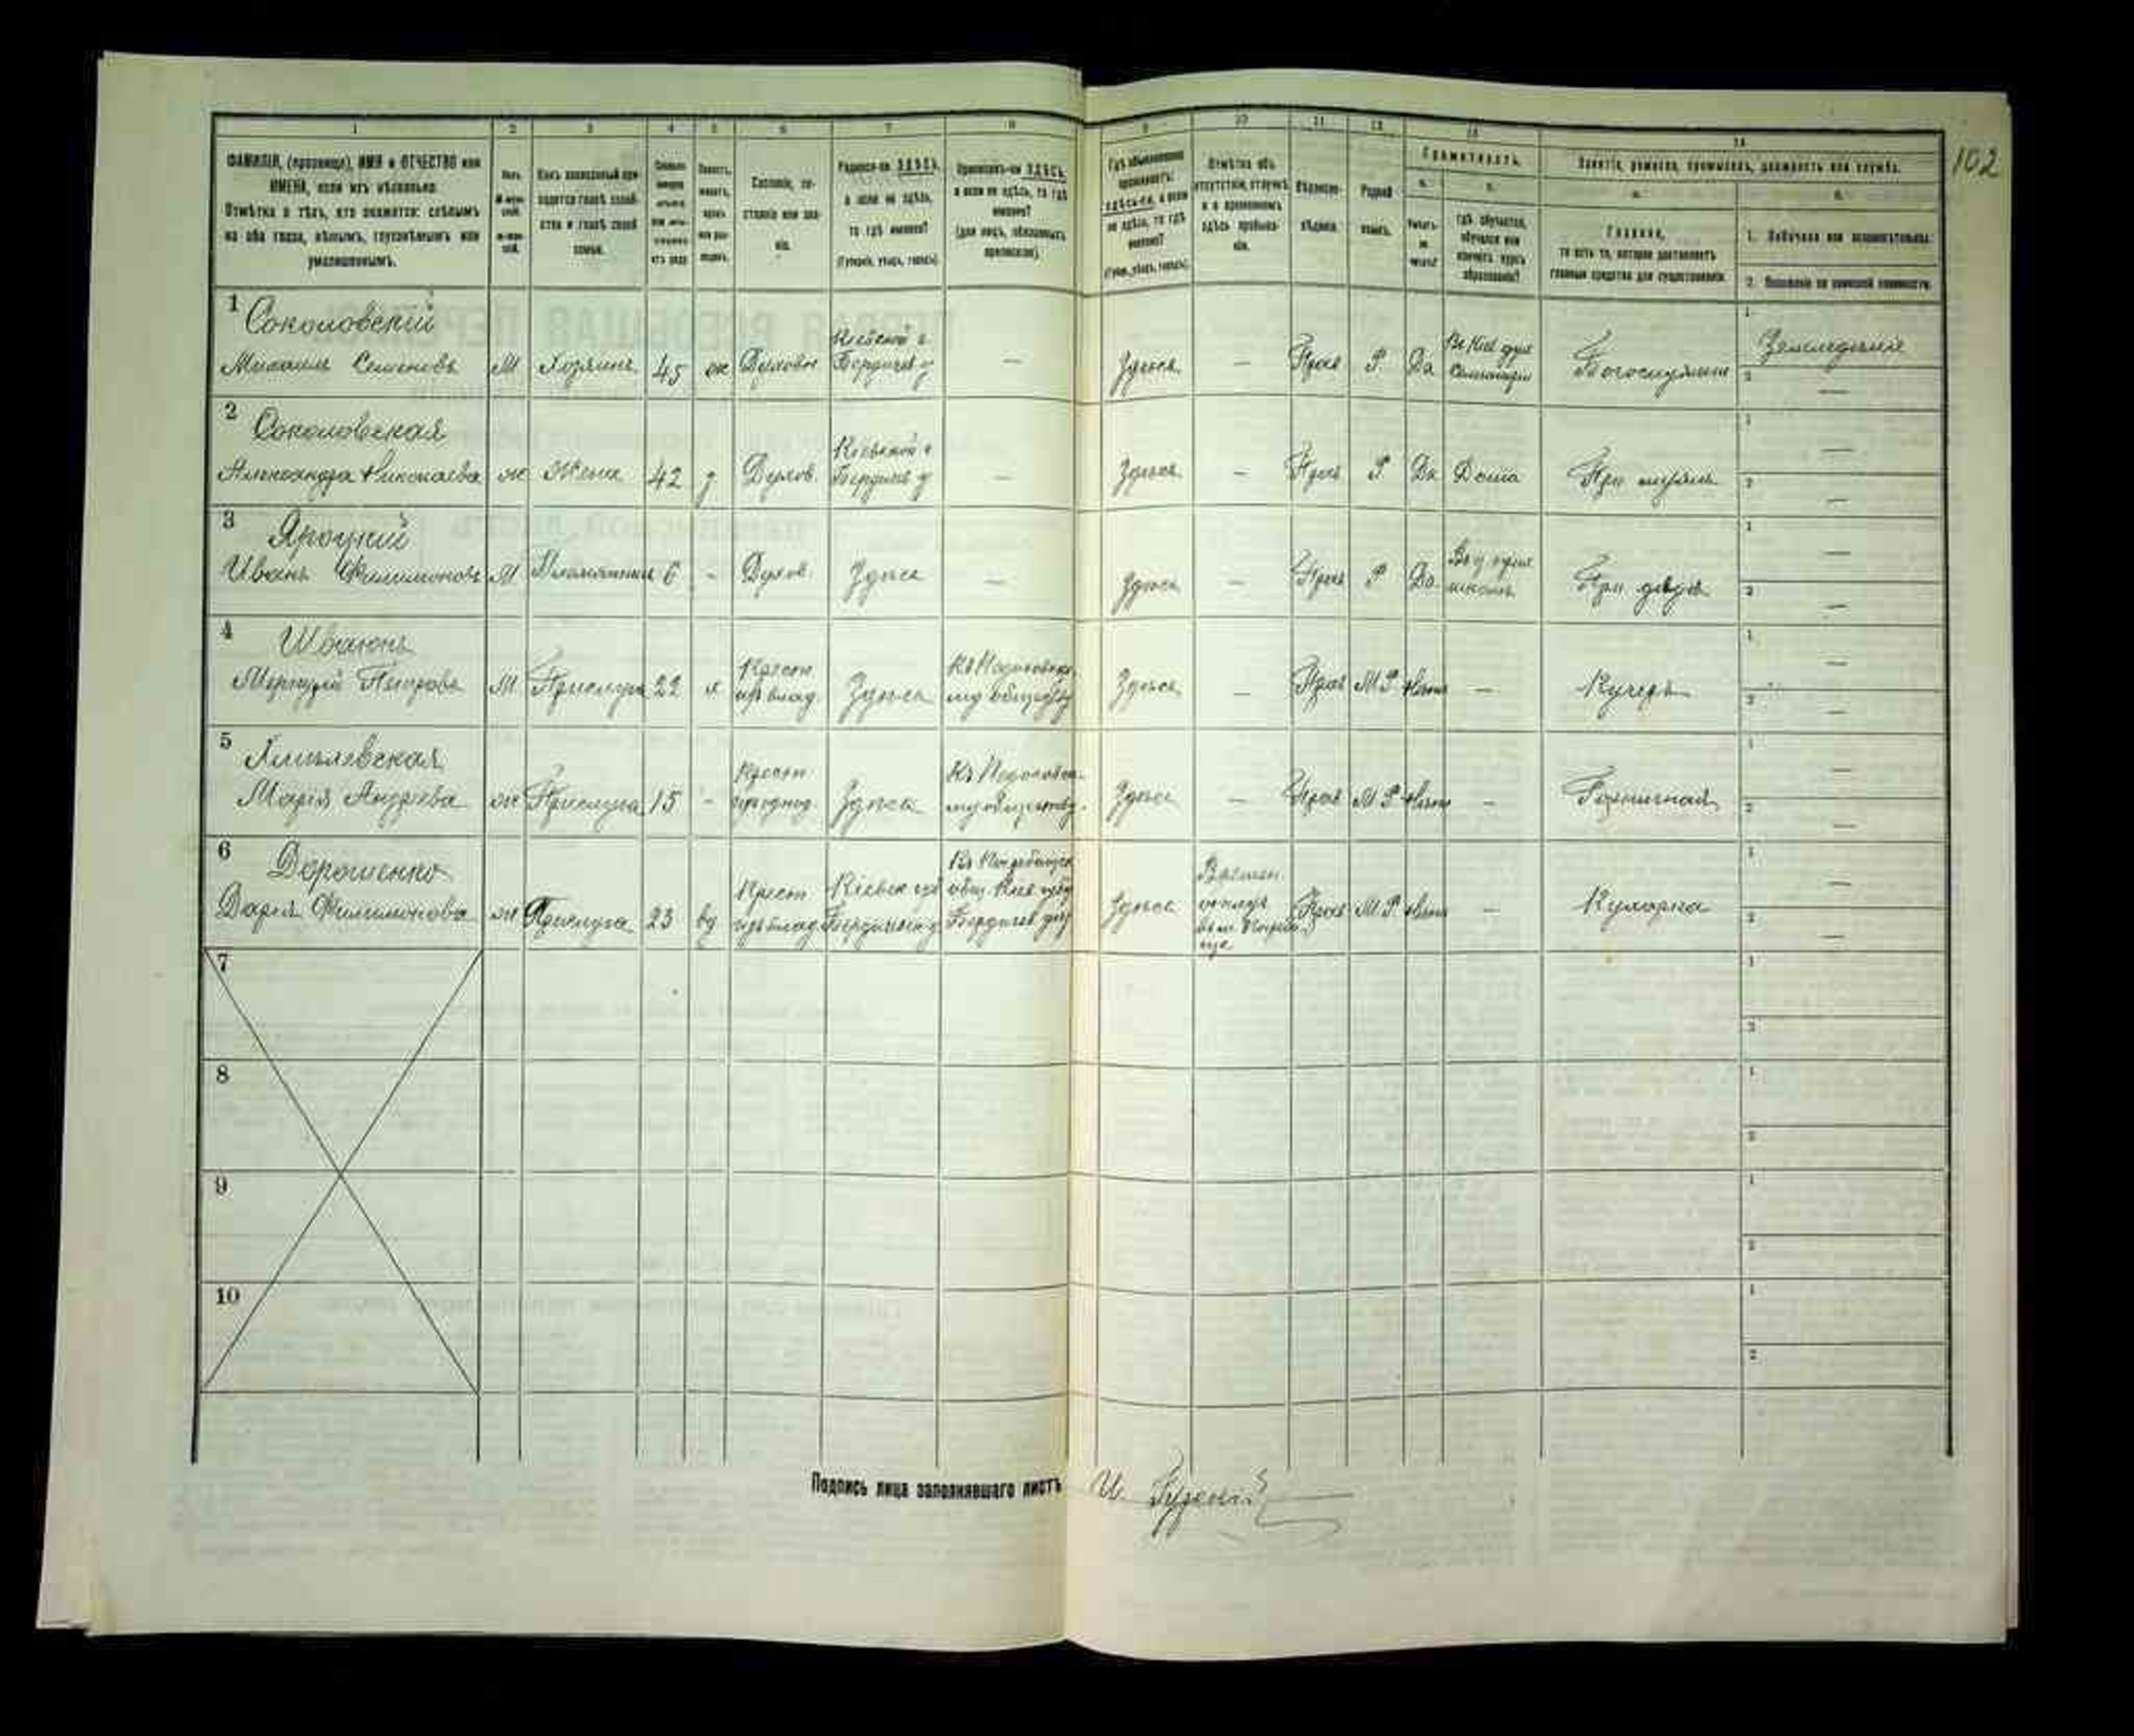 102
1 2 3 4 5 6 7 8 9 10 11 12 13 14
ФАМИЛІЯ, (прозвище), ИМЯ и ОТЧЕСТВО или
ИМЕНА, если ихъ нѣсколько.
Отмѣтка о тѣхъ, кто окажется: слѣпымъ
на оба глаза, нѣмымъ, глухонѣмымъ или
умалишеннымъ.
Полъ.
Какъ записанный при-
ходится главѣ хозяй-
ства и главѣ своей
семьи.
Сословіе, со-
стояніе или зва-
ніе.
Родился-ли ЗДѢСЬ,
а если не здѣсь,
то гдѣ именно?
(Губернія, уѣздъ, городъ)
Приписанъ-ли ЗДѢСЬ,
а если не здѣсь, то гдѣ
именно?
(для лицъ, обязанныхъ
припискою).
Гдѣ обыкновенно
проживаетъ:
здѣсь-ли, а если
не здѣсь, то гдѣ
именно?
(Губ., уѣздъ, городъ)
Отмѣтка объ
отсутствіи, отлучкѣ
и о временномъ
здѣсь пребыва-
ніи.
Вѣроиспо-
вѣданіе.
Родной
языкъ.
Грамотность.
а. б.
Умѣетъ-
ли
читать?
гдѣ обучается,
обучался или
кончилъ курсъ
образованія?
Занятіе, ремесло, промыселъ, должность или служба.
а. б.
Главное,
то есть то, которое доставляетъ
главныя средства для существованія.
1. Побочное или вспомогательное.
2. Положеніе по воинской повинности.
1 Соколовскій
Михаилъ Семеновъ М Хозяинъ 45 ж Духовн Кіевской г Бердичев у — Здѣсь — Прав Р Да Въ Кіев дух Семинаріи Богослуженіе
1 Земледѣліе
2 —
2 Соколовская
Александра Николаева ж Жена 42 з Духов. Кіевской г Бердичев у — Здѣсь — Прав Р Да Дома При мужѣ
1 —
2 —
3 Яроцкій
Иванъ Филимоновъ М Племянникъ 6 - Духов. Здѣсь — Здѣсь — Прав Р Да школѣ При дядѣ
1 —
2 —
4
Петровъ М Прислуга 22 х Крест изъ влад. Здѣсь обществу Здѣсь — Прав М Р Нѣтъ — Кучеръ
1 —
2 —
5
Марія Андреева ж Прислуга 15 - Крест Здѣсь обществу Здѣсь — Прав М Р Нѣтъ — Горничная
1 —
2 —
6 Дорошенко
Дарія Филимонова ж Прислуга 23 вд Крест изъ влад Кіевск губ Бердичевск у общ. Кіев губ Бердичев уѣз Здѣсь Времен. Прав М Р Нѣтъ — Кухарка
1 —
2 —
7
1
2
8
1
2
9
1
2
10
1
2
Подпись лица заполнявшаго листъ И.